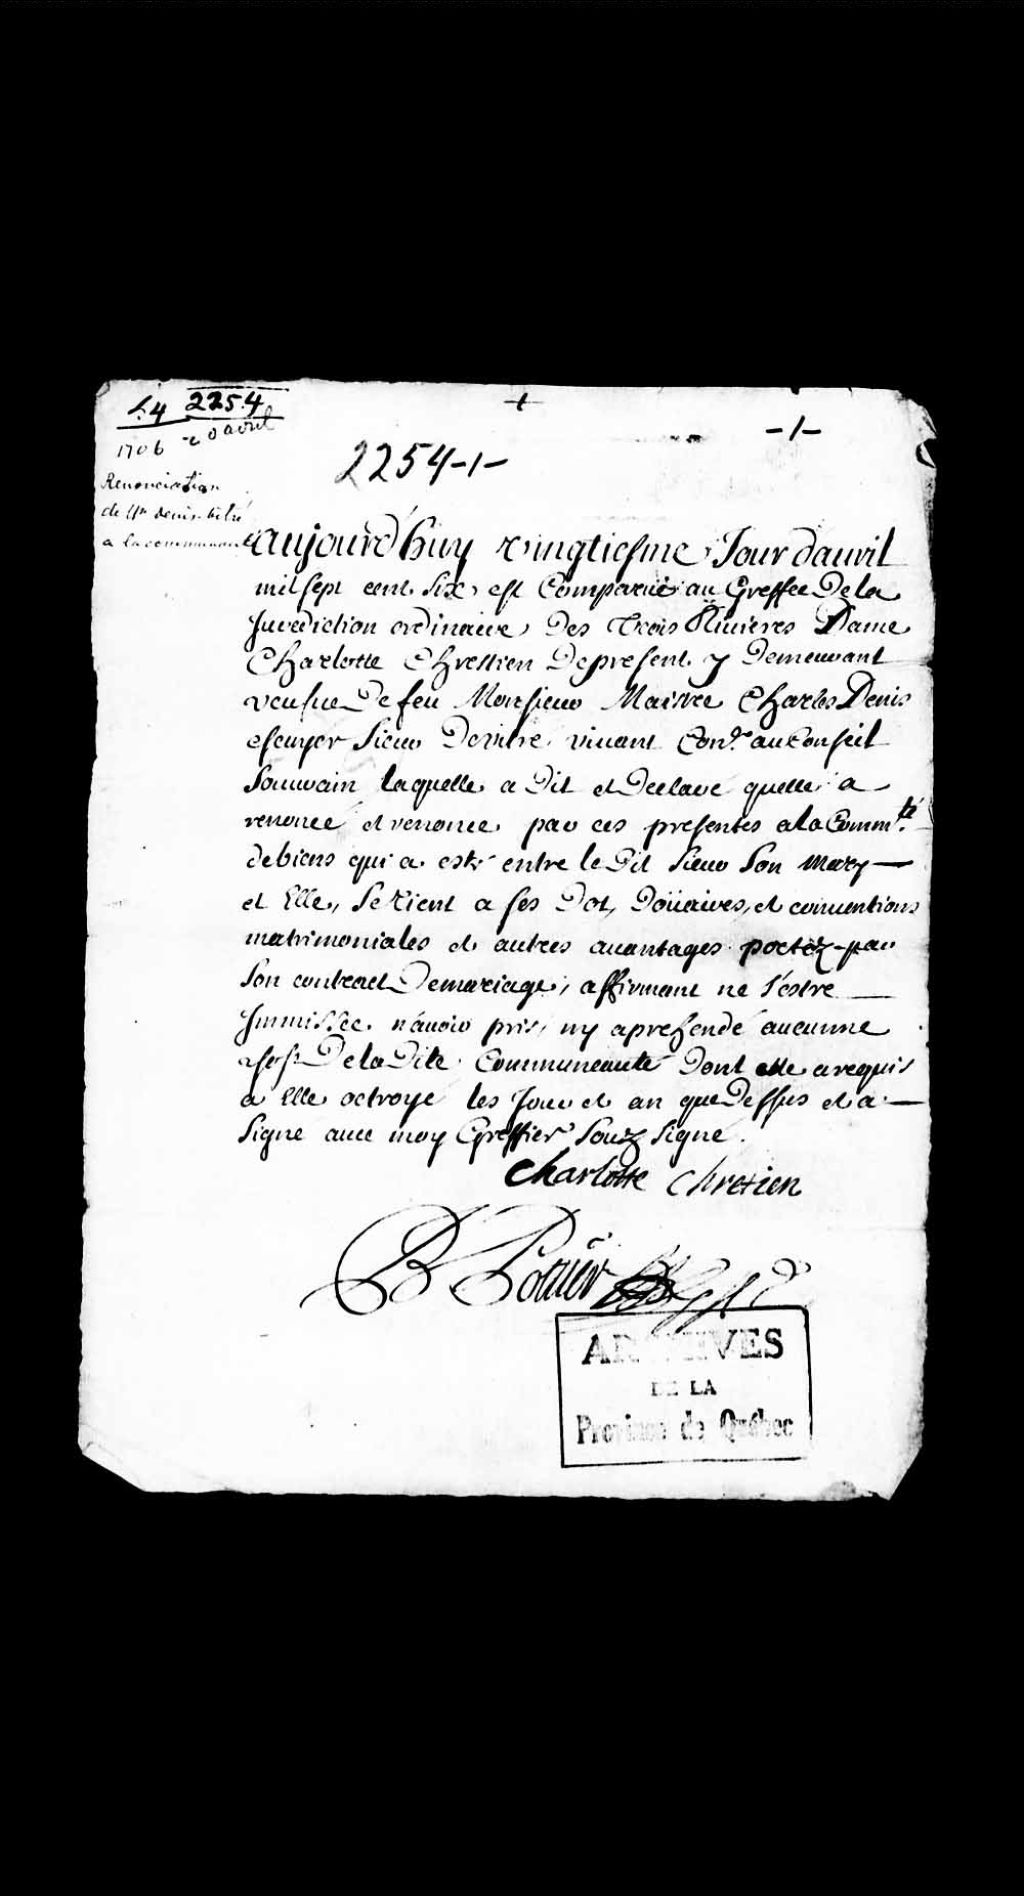 54 2254
1706 20 avril
-1-
2254-1-
Renonciation
de Mr denis-Vitré
a la communauté
aujourd'huy vingtiesme Jour dauril
mil sept cent six, est Comparüe au Greffe De la
Jurediction ordinaire Des Trois Riuieres Dame
Charlotte Chrestien De present y Demeurant
veufue De feu Monsieur Maistre Charles Denis
escuyer sieur Devitré viuant Conr. au Conseil
Souuerain laquelle a Dit et Declaré quelle a
renoncé et renonce par ces presentes a la Commté.
de biens qui a esté entre le Dit sieur son mary
et Elle, se tient a ses Dot, Doüaires, et conuentions
matrimoniales et autres auantages portéz par
son contract De mariage, affirmant ne s'estre
Jmmissée n'auoir pris, ny aprehendé aucunne
De la Dite Communeauté Dont elle a requis
a Elle octroyé les Jour et an que Dessus et a
signé auec moy Greffier souz signé.
Charlotte Chretien
B Pottier
ARCHIVES
DE LA
Province de Québec